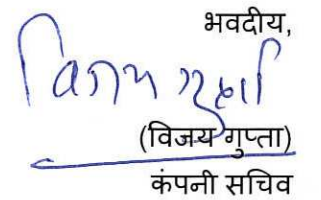 भवदीय,
विजय गुप्ता
(विजय गुप्ता)
कंपनी सचिव